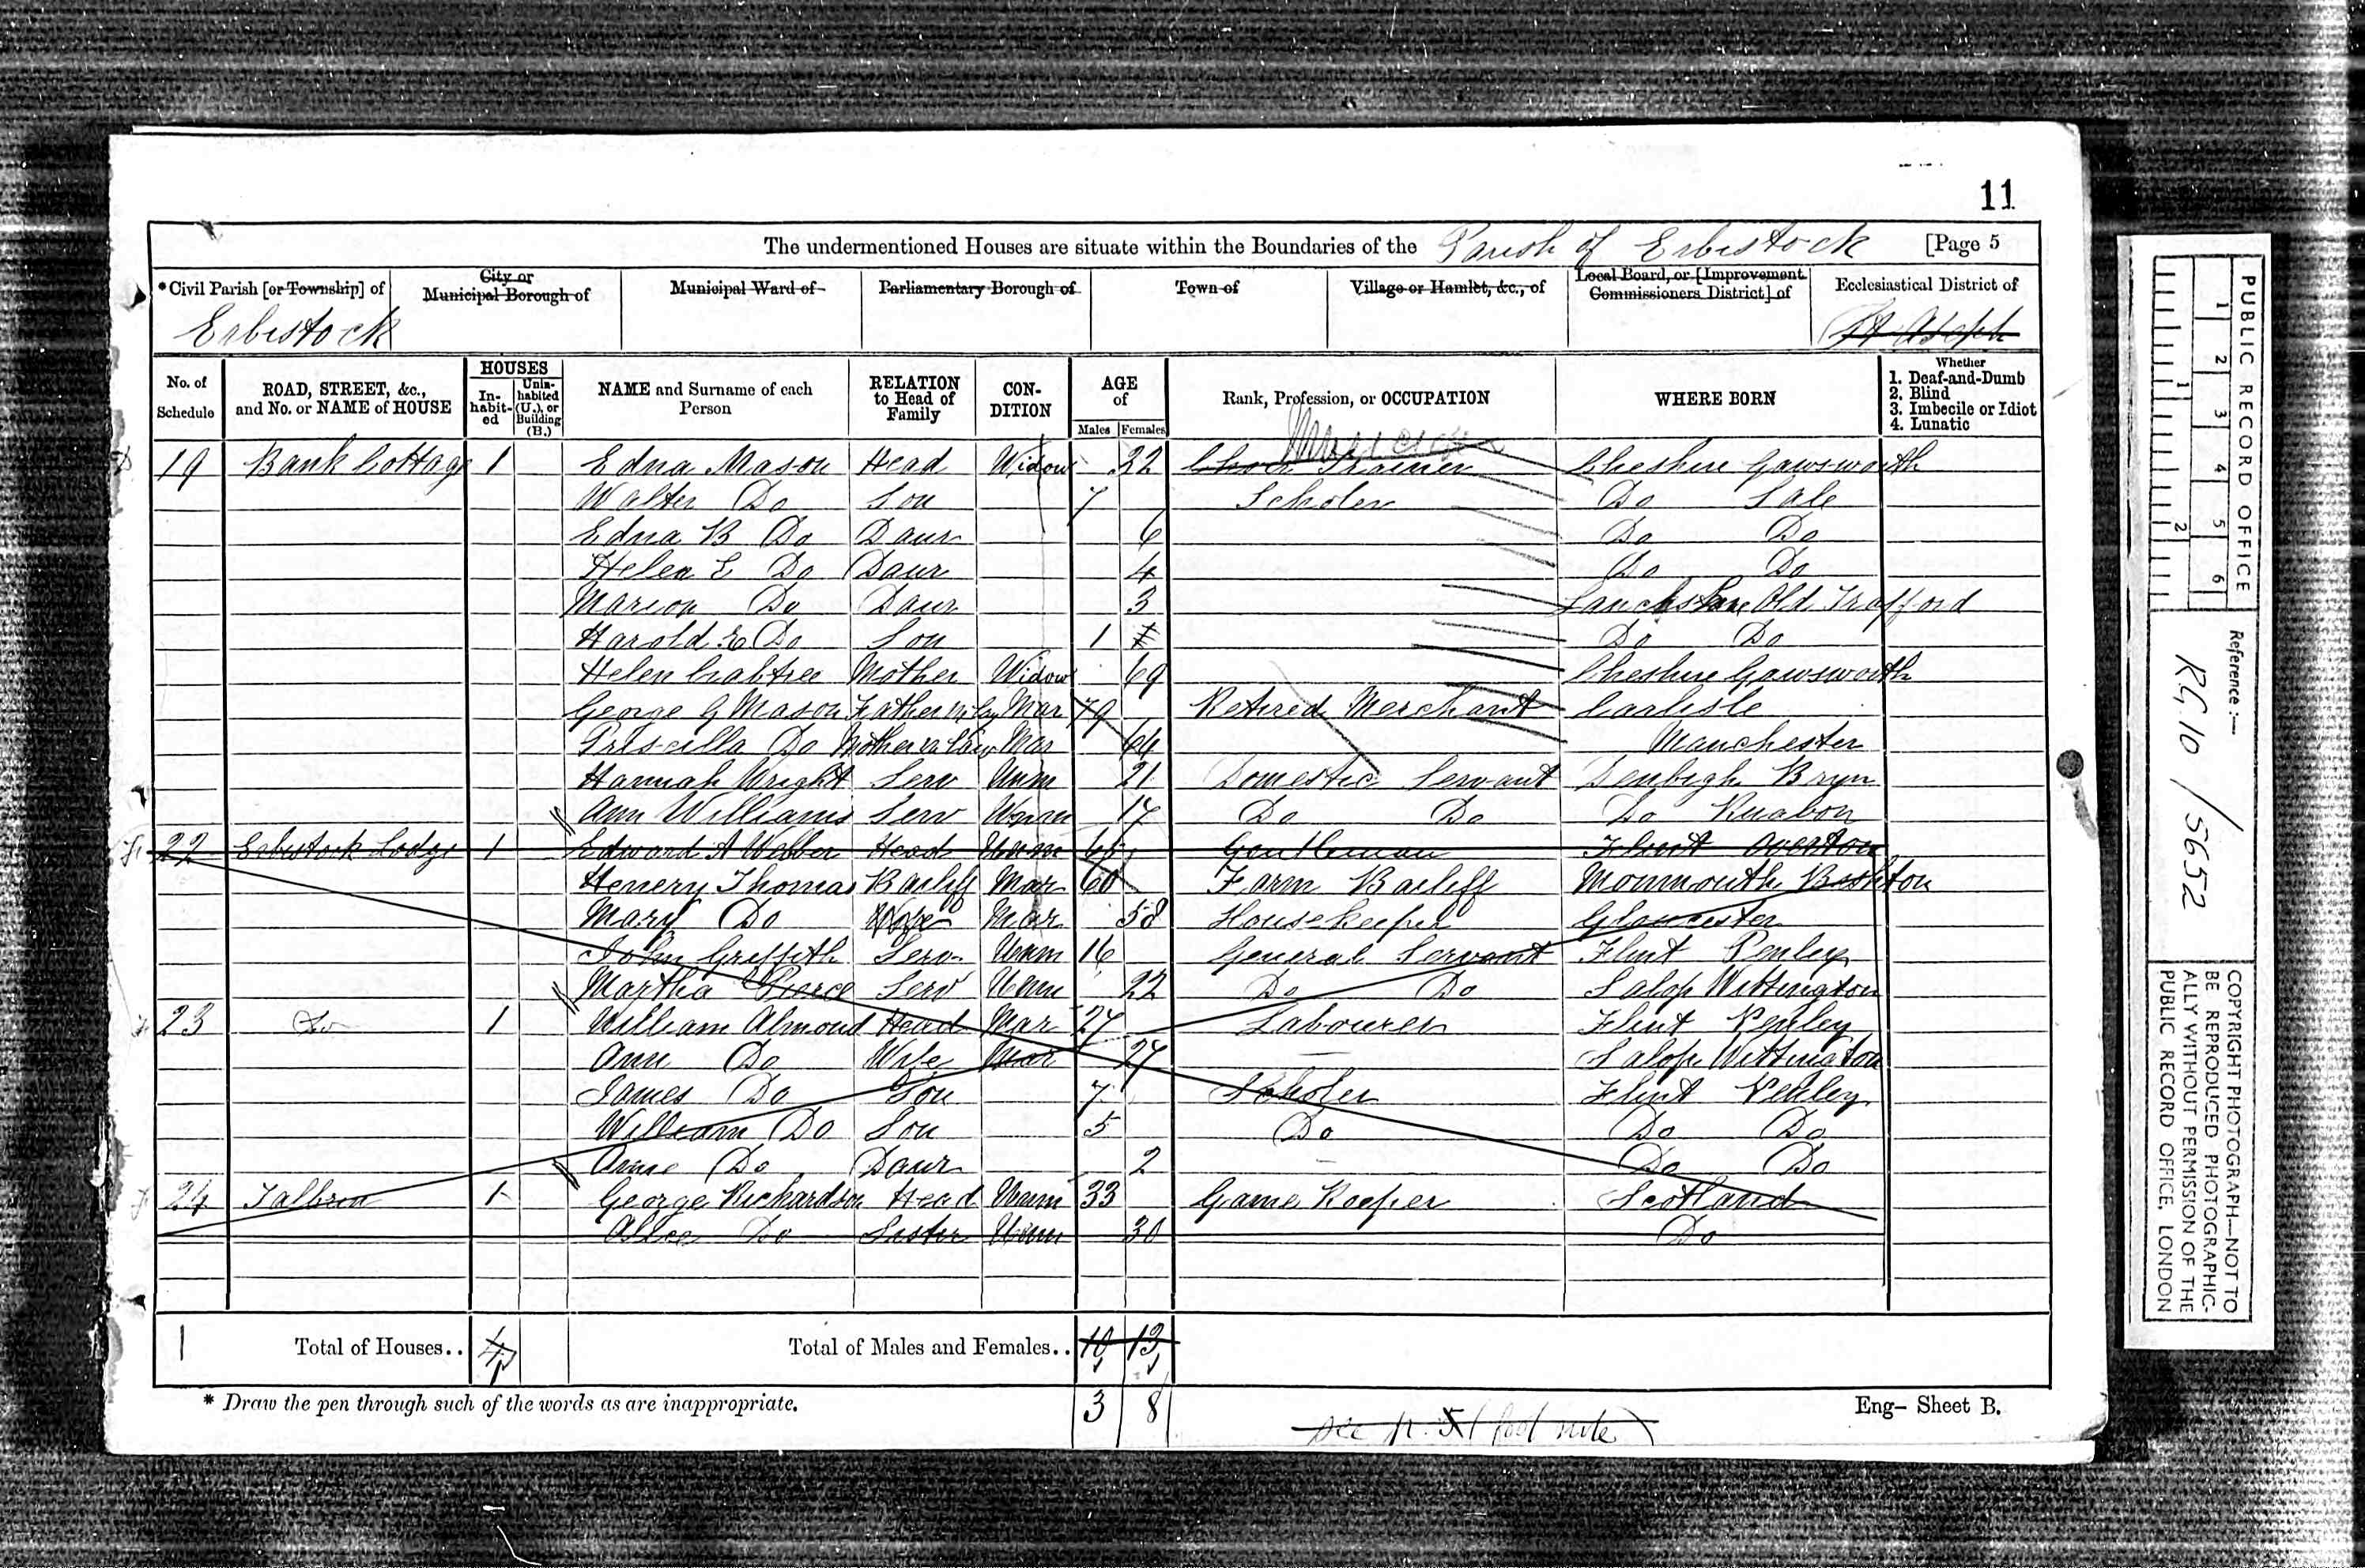 11
The undermentioned Houses are situate within the Boundaries of the Parish of Erbistock [Page 5
*Civil Parish [or Township] of Erbistock
City or Municipal Borough of
Municipal Ward of
Parliamentary Borough of
Town of
Village or Hamlet, &c., of
Local Board, or [Improvement Commissioners District] of
Ecclesiastical District of St Asaph
No. of Schedule
ROAD, STREET, &c., and No. or NAME of HOUSE
HOUSES
In-habit-ed
Unin-habited (U.), or Building (B.)
NAME and Surname of each Person
RELATION to Head of Family
CON-DITION
AGE of
Males Females
Rank, Profession, or OCCUPATION
WHERE BORN
Whether
1. Deaf-and-Dumb
2. Blind
3. Imbecile or Idiot
4. Lunatic
Musician
19 Bank Cottage 1 Edna Mason Head Widow 22 Choir Trainer Cheshire Gawsworth
Walter Do Son 7 Scholer Do Sale
Edna B Do Daur 6 Do Do
Helen E Do Daur 4 Do Do
Marion Do Daur 3 Lancashire Old Trafford
Harold E Do Son 1 Do Do
Helen Crabtree Mother Widow 69 Cheshire Gawsworth
George G Mason Father in law Mar 79 Retired Merchant Carlisle
Priscilla Do Mother in law Mar 64 Manchester
Hannah Wright Serv Unm 21 Domestic Servant Denbigh Bryn
Ann Williams Serv Unm 17 Do Do Do Ruabon
22 Erbistock Lodge 1 Edward A Webber Head Unm Gentleman Flint Overton
Henery Thomas Bailiff Mar 60 Farm Bailiff Monmouth Bishton
Mary Do Wife Mar 58 Housekeeper Gloucester
John Griffith Serv Unm 16 General Servant Flint Penley
Martha Pierce Serv Unm 22 Do Do Salop Wittington
23 Do 1 William Almond Head Mar 27 Labourer Flint Penley
Ann Do Wife Mar 27 Salop Wittington
James Do Son 7 Scholer Flint Penley
William Do Son 5 Do Do Do
Anne Do Daur 2 Do Do
24 1 George Richardson Head Unm 33 Game Keeper Scotland
Alice Do Sister Unm 30 Do
1 Total of Houses.. 4 Total of Males and Females.. 10 13
* Draw the pen through such of the words as are inappropriate. 3 8 Eng- Sheet B.
see p. foot note
PUBLIC RECORD OFFICE
1 2 3 4 5 6
1 2
Reference :—
RG 10 / 5652
COPYRIGHT PHOTOGRAPH—NOT TO BE REPRODUCED PHOTOGRAPHIC-ALLY WITHOUT PERMISSION OF THE PUBLIC RECORD OFFICE, LONDON